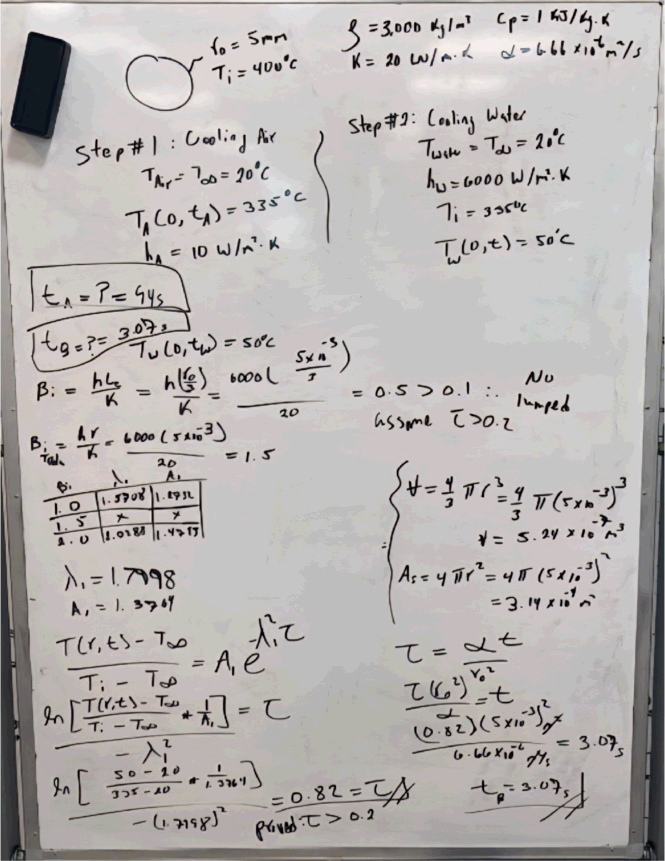 r₀ = 5mm
Tᵢ = 400°C
ρ = 3,000 Kg/m³ Cp = 1 KJ/Kg.K
K = 20 W/m.K α = 6.66 x10⁻⁶ m²/s
Step #1 : Cooling Air
T_Air = T∞ = 20°C
T_A(0, t_A) = 335°C
h_A = 10 W/m².K
Step #2: Cooling Water
T_Water = T∞ = 20°C
h_w = 6000 W/m².K
Tᵢ = 335°C
T_w(0,t) = 50°C
t_A = ? = 94s
t_B = ? = 3.07s
T_w(0,t_w) = 50°C
Bi = hLc/K = h(r₀/3)/K = 6000(5x10⁻³/3)/20 = 0.5 > 0.1 ∴ No lumped
assume τ>0.2
Bi Table = hr/K = 6000(5x10⁻³)/20 = 1.5
Bi λ₁ A₁
1.0 1.5708 1.2732
1.5 x x
2.0 2.0288 1.4793
λ₁ = 1.7998
A₁ = 1.3764
V = 4/3 πr³ = 4/3 π(5x10⁻³)³
V = 5.24 x10⁻⁷ m³
As = 4πr² = 4π(5x10⁻³)²
= 3.14 x10⁻⁴ m
T(r,t) - T∞ / Tᵢ - T∞ = A₁ e^-λ₁²τ
ln[T(r,t) - T∞ / Tᵢ - T∞ * 1/A₁] / -λ₁² = τ
ln[50-20 / 335-20 * 1/1.3764] / -(1.7998)² = 0.82 = τ
proved: τ > 0.2
τ = αt/r₀²
τ(r₀²)/α = t
(0.82)(5x10⁻³)² m² / 6.66x10⁻⁶ m²/s = 3.07s
t_B = 3.07s